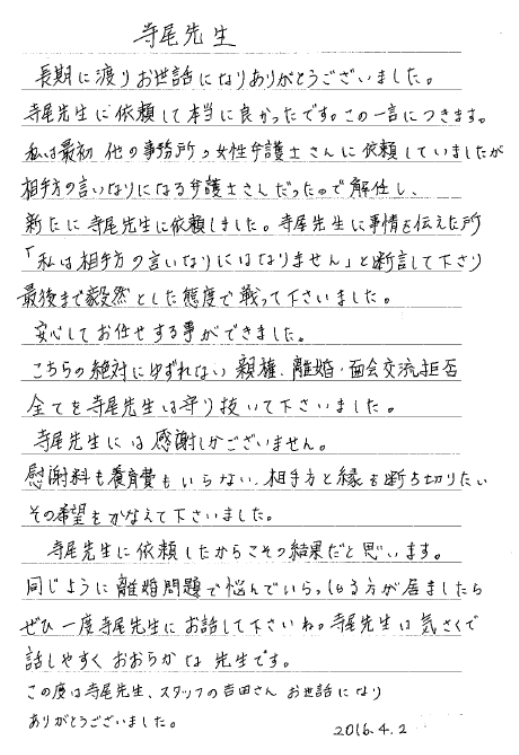 寺尾先生
長期に渡りお世話になりありがとうございました。
寺尾先生に依頼して本当に良かったです。この一言につきます。
私は最初 他の事務所の女性弁護士さんに依頼していましたが
相手方の言いなりになる弁護士さんだったので解任し、
新たに寺尾先生に依頼しました。寺尾先生に事情を伝えた所
「私は相手方の言いなりにはなりません」と断言して下さり
最後まで毅然とした態度で戦って下さいました。
安心してお任せする事ができました。
こちらの絶対にゆずれない 親権、離婚・面会交流拒否
全てを寺尾先生は守り抜いて下さいました。
寺尾先生には感謝しかございません。
慰謝料も養育費もいらない、相手方と縁を断ち切りたい
その希望をかなえて下さいました。
寺尾先生に依頼したからこその結果だと思います。
同じように離婚問題で悩んでいらっしゃる方が居ましたら
ぜひ一度寺尾先生にお話して下さいね。寺尾先生は気さくで
話しやすくおおらかな先生です。
この度は寺尾先生、スタッフの吉田さん お世話になり
ありがとうございました。
2016.4.2